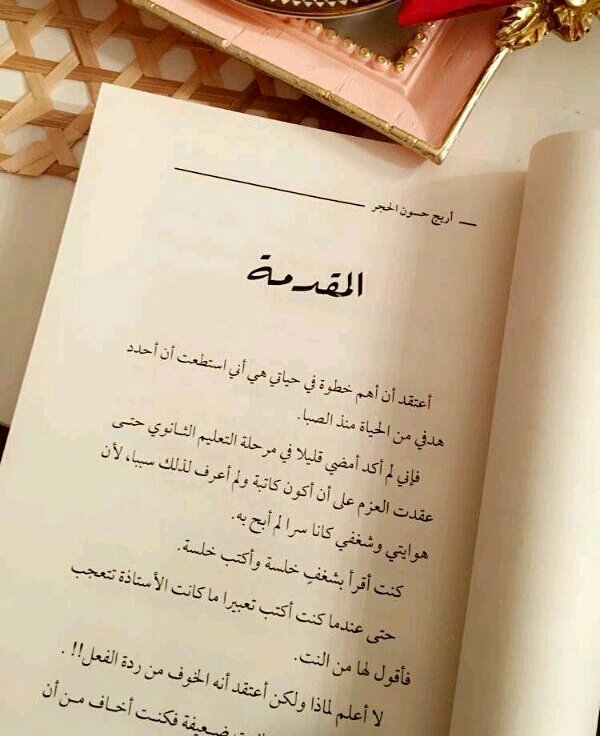 أريج حسون الحجر
المقدمة
أعتقد أن أهم خطوة في حياتي هي أني استطعت أن أحدد
هدفي من الحياة منذ الصبا.
فإني لم أكد أمضي قليلا في مرحلة التعليم الثانوي حتى
عقدت العزم على أن أكون كاتبة ولم أعرف لذلك سببا، لأن
هوايتي وشغفي كانا سرا لم أبح به.
كنت أقرأ بشغفٍ خلسة وأكتب خلسة.
حتى عندما كنت أكتب تعبيرا ما كانت الأستاذة تتعجب
فأقول لها من النت.
لا أعلم لماذا ولكن أعتقد أنه الخوف من ردة الفعل!! .
ضعيفة فكنت أخاف من أن